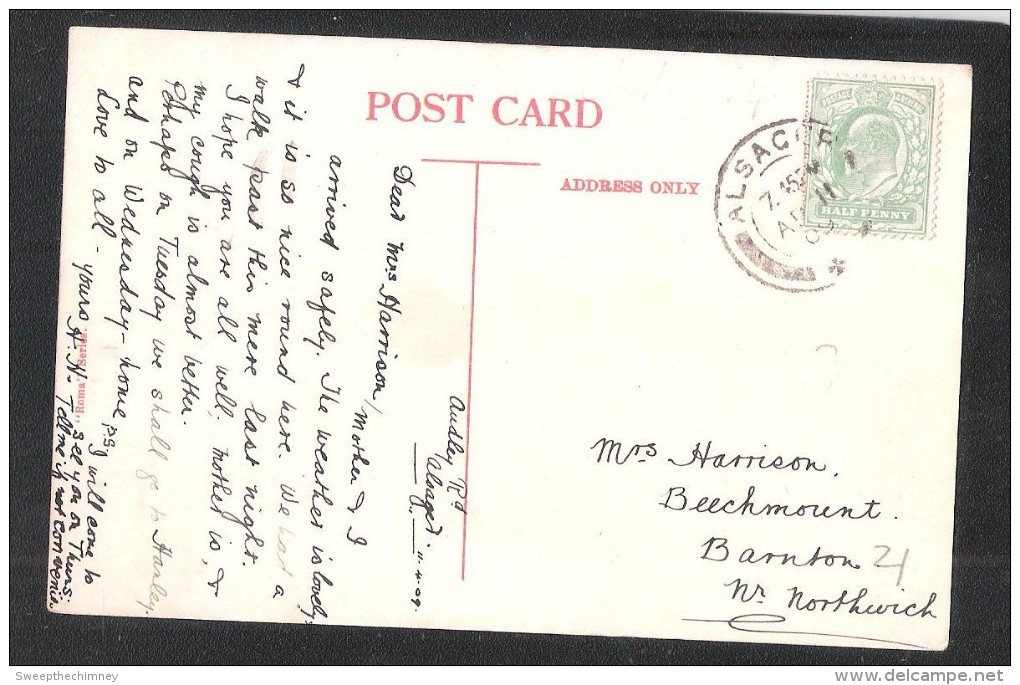 POST CARD
ADDRESS ONLY
HALF PENNY
ALSAGER
AP 11
09
Audley Rd
Alsager.
11-4-09.
Dear Mrs Harrison,
Mother & I
arrived safely. The weather is lovely
& it is so nice round here. We had a
walk past this mere last night.
I hope you are all well, mother is, &
my cough is almost better.
Perhaps on Tuesday we shall go to Hanley,
and on Wednesday - home
Love to all - yours
H. N.
PS I will come to
see you on Thurs.
Tell me if not convenie.
"Roma" Series.
Mrs Harrison,
Beechmount.
Barnton
Nr Northwich
21
Sweepthechimney
delcampe.net